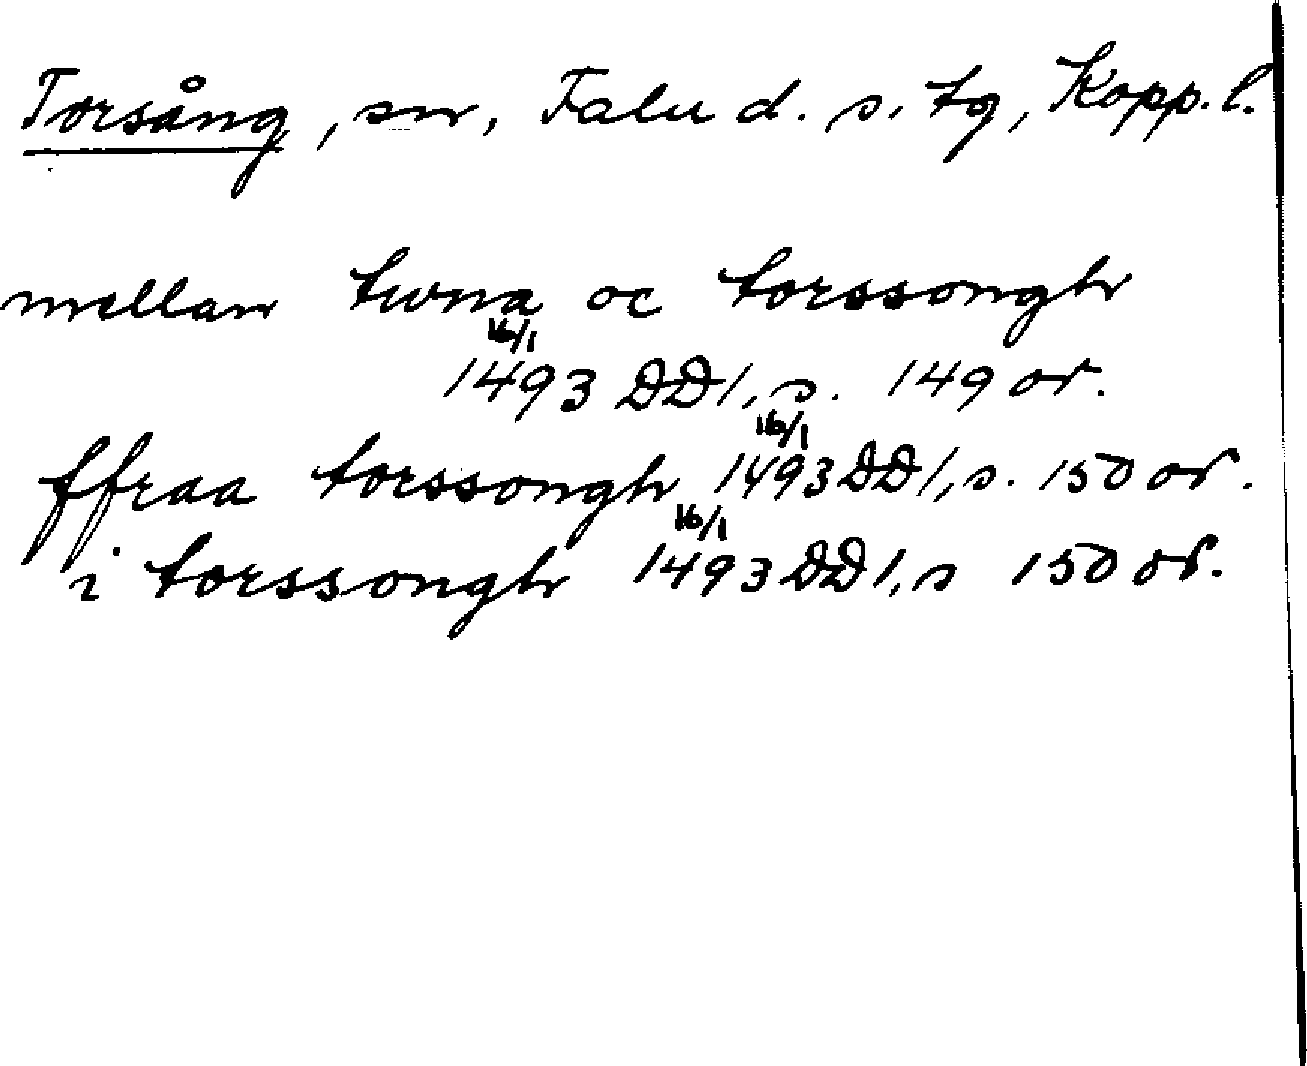 Torsång, sn, Falu d. s. tg, Kopp. l.
mellan twna oc torssongh
16/1
1493 DD 1, s. 149 or.
16/1
ffraa torssongh 1493 DD 1, s. 150 or.
16/1
i torssongh 1493 DD 1, s 150 or.